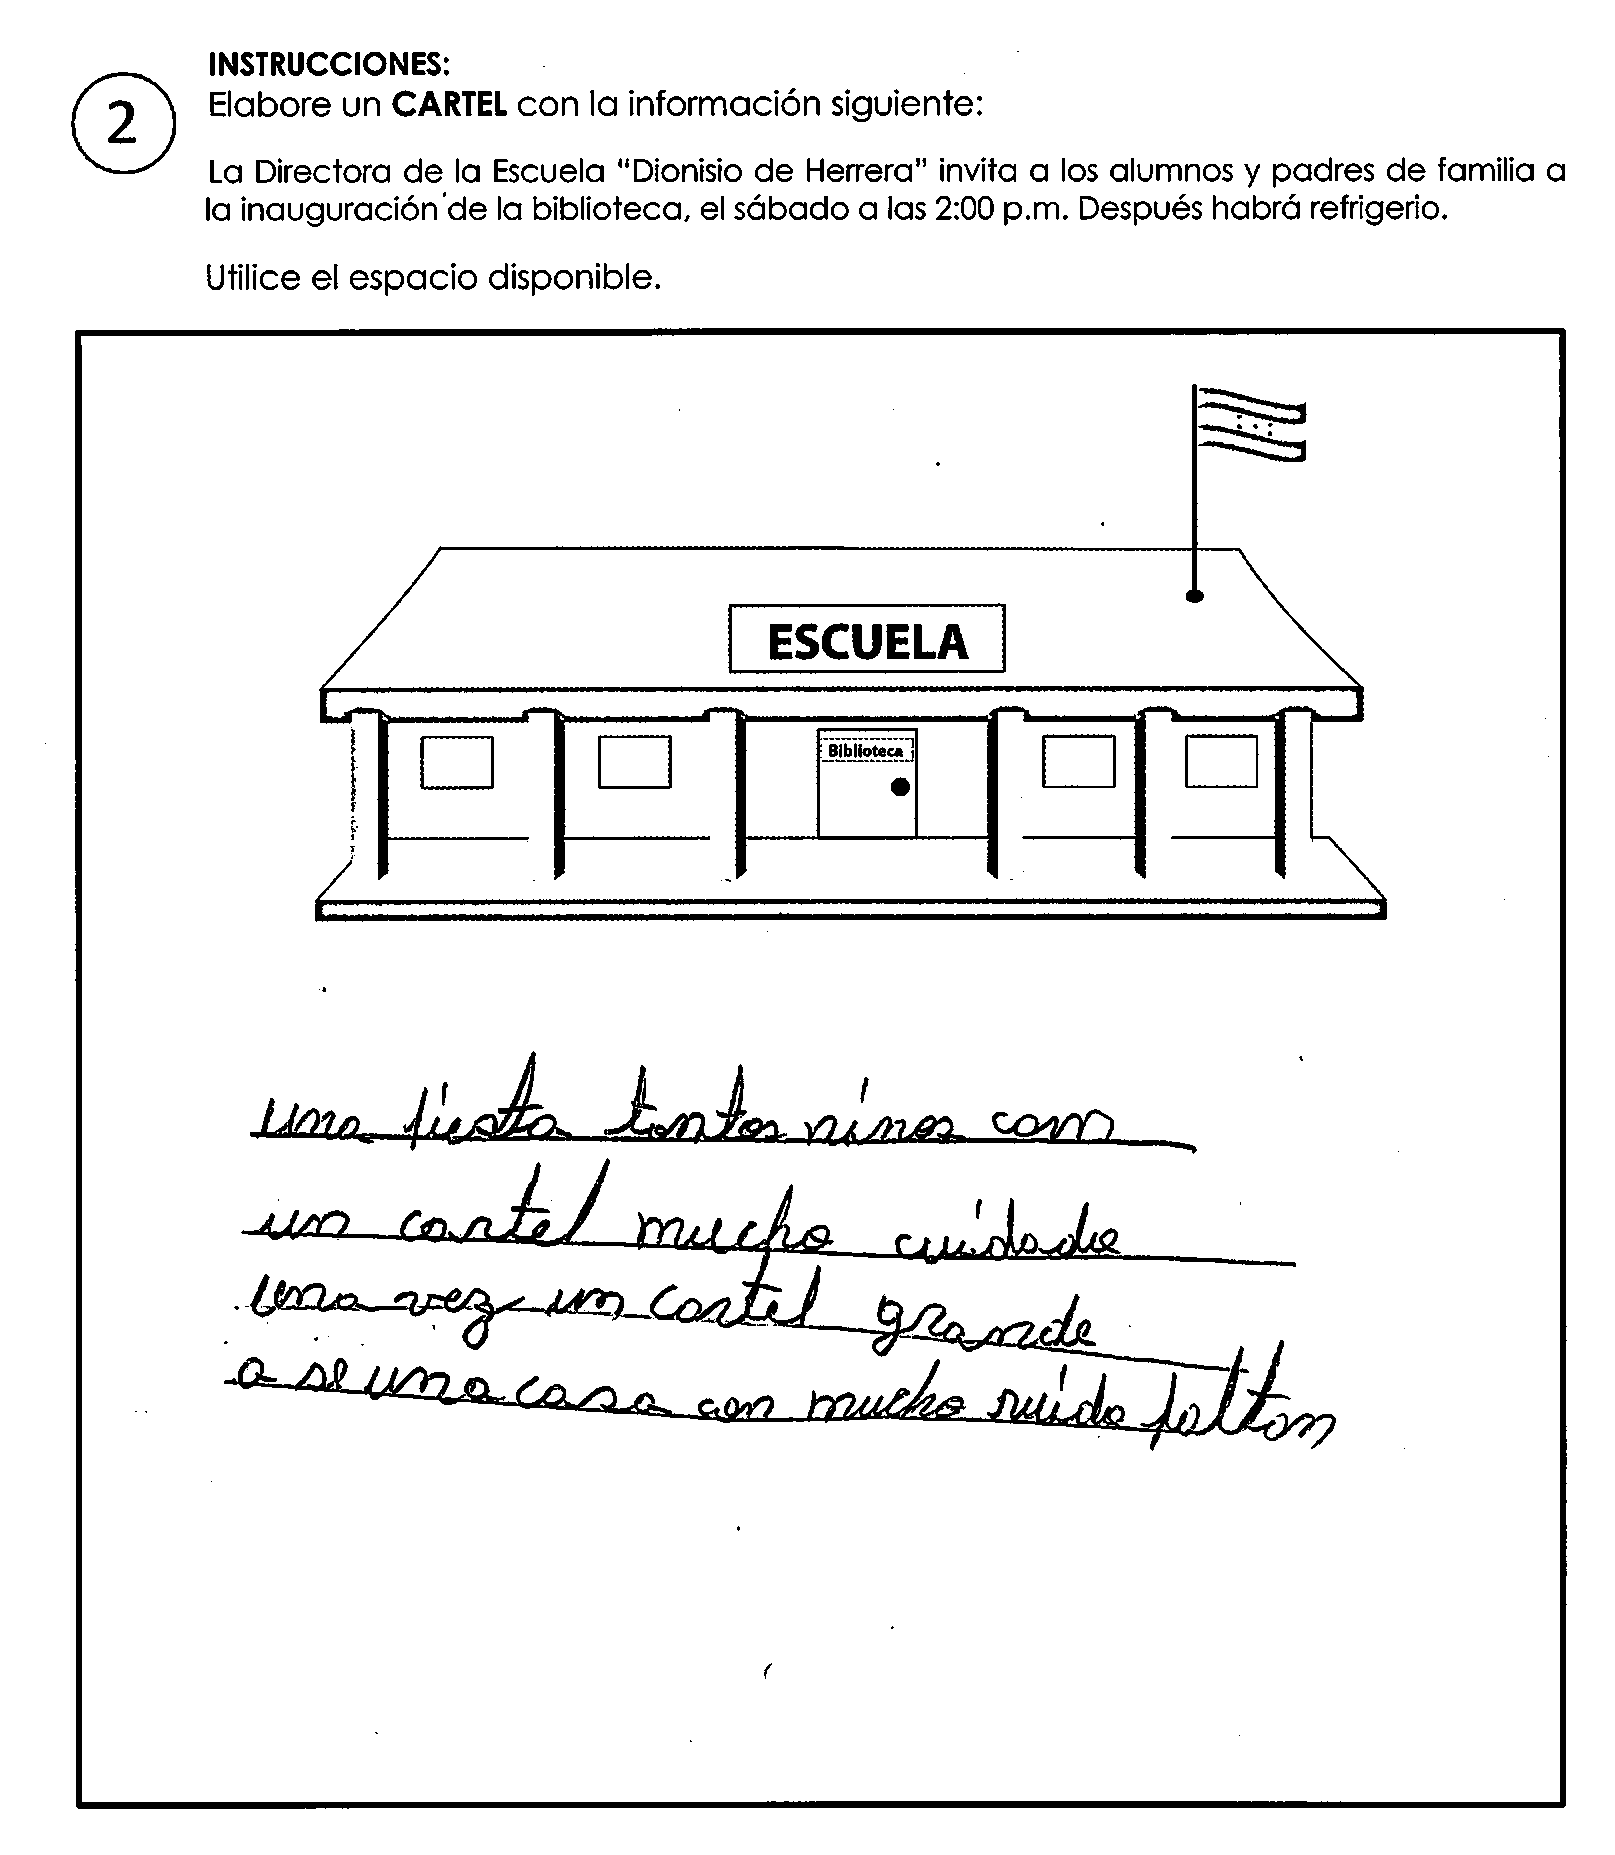 INSTRUCCIONES:
2
Elabore un CARTEL con la información siguiente:
La Directora de la Escuela "Dionisio de Herrera" invita a los alumnos y padres de familia a
la inauguración de la biblioteca, el sábado a las 2:00 p.m. Después habrá refrigerio.
Utilice el espacio disponible.
ESCUELA
Biblioteca
una fiesta tantos ninos com
un cartel mucho cuidado
una vez un cartel grande
a se una casa con mucho ruido faltan